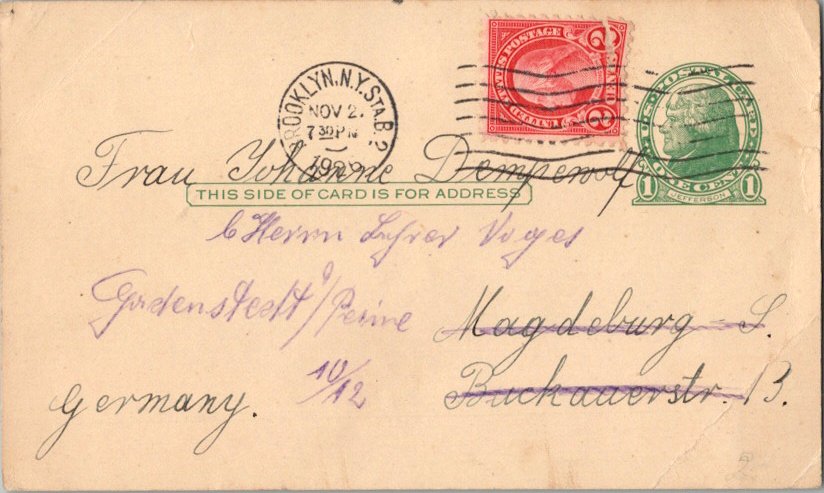 BROOKLYN, N.Y. STA. B. 2
NOV 2
7 30 PM
UNITED STATES POSTAGE
2 2
U.S. POSTAL CARD
ONE CENT
1 1
JEFFERSON
Frau Johanne Dempewolf
THIS SIDE OF CARD IS FOR ADDRESS
b Herrn Lehrer Voges
Gadenstedt / Peine
Magdeburg - S.
10/12
Buckauerstr. 13.
Germany.
2